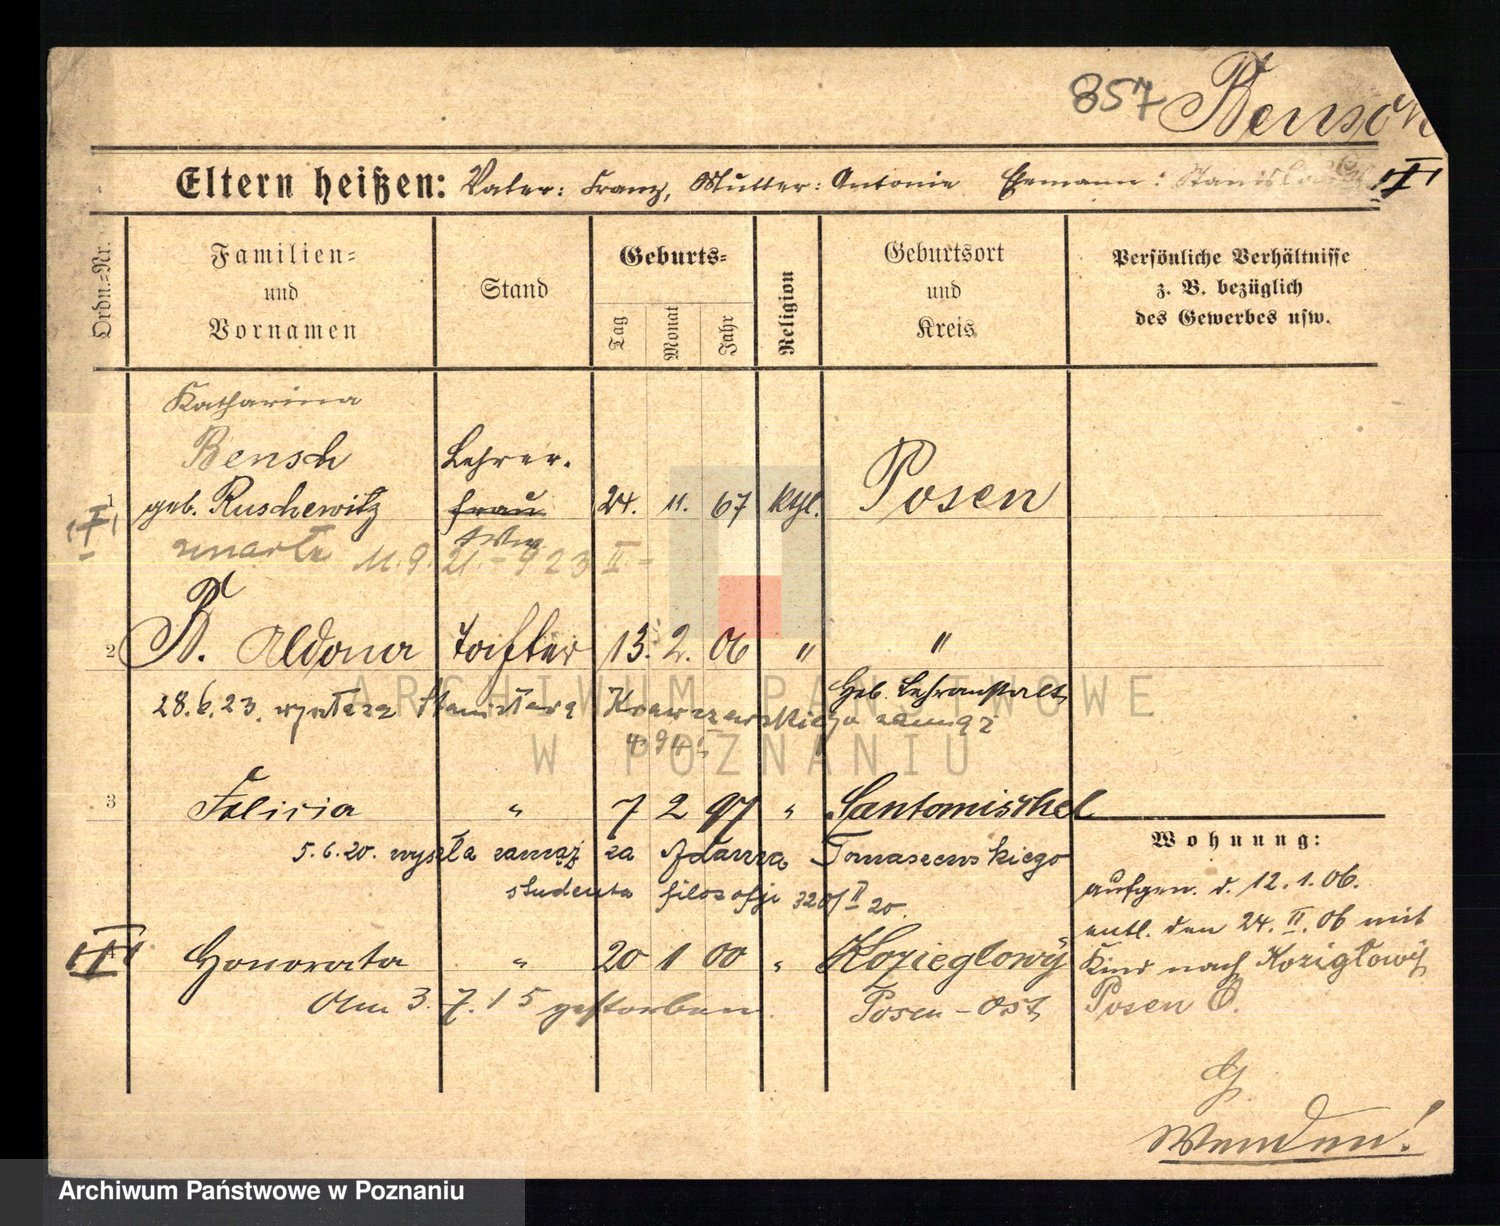 857 Bensch
Eltern heißen: Vater: Franz, Mutter: Antonie Ehemann: Stanislaus
Ordn.=Nr.
Familien=
und
Vornamen
Stand
Geburts=
Tag
Monat
Jahr
Religion
Geburtsort
und
Kreis
Persönliche Verhältnisse
z. B. bezüglich
des Gewerbes usw.
Katharina
Bensch Lehrer.
1 geb. Ruschewitz frau 24. 11. 67 ktl. Posen
Ww
zmarła 11.9.21.-923 II-
2 B. Aldona Tochter 13. 2. 06 " "
Geb. Lehranstalt
28.6.23. wyszła za Stanisława Krawczewskiego zamąż
3 Felicia " 7 2 97 " Santomischel
5.6.20. wyszła zamąż za Adama Tomaszewskiego
studenta filozofji 320/II 20.
Wohnung:
aufgen. d. 12.1.06.
entl. den 24. II. 06 mit
Kind nach Koziegłowy
Posen O.
Honorata " 20 1 00 " Koziegłowy
Am 3. 7. 15 gestorben. Posen-Ost
Wenden!
ARCHIWUM PAŃSTWOWE
W POZNANIU
Archiwum Państwowe w Poznaniu